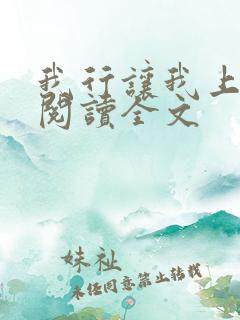 我行讓我上
閱讀全文
妹祉
未任同意禁止轉載